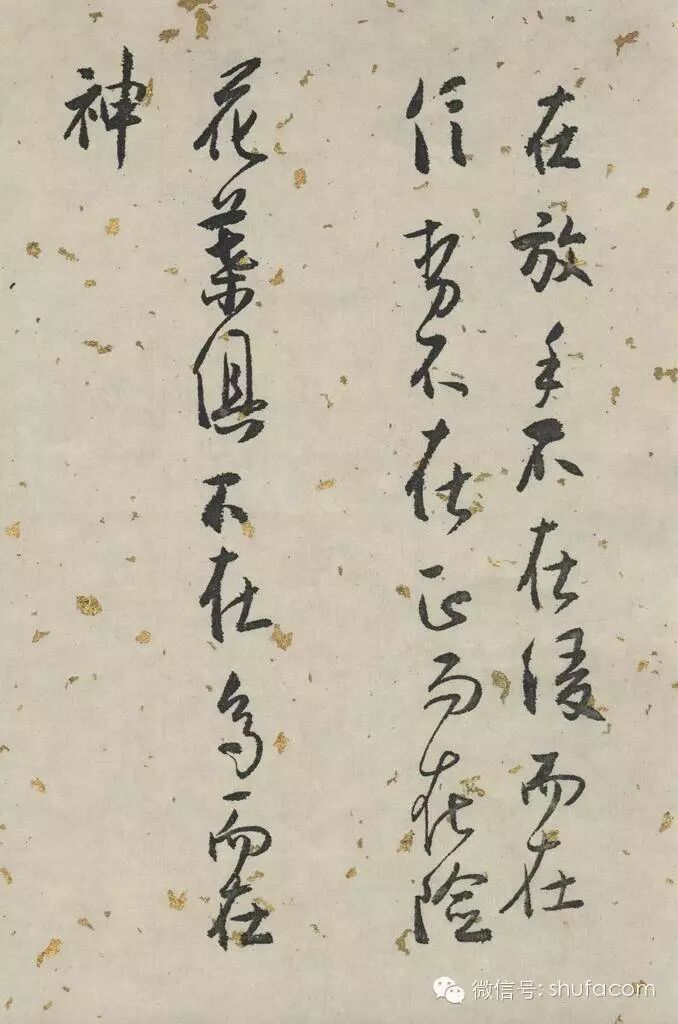 在放手不在而在
信勢不在正而在險
花葉俱不在多而在
神
微信号: shufacom